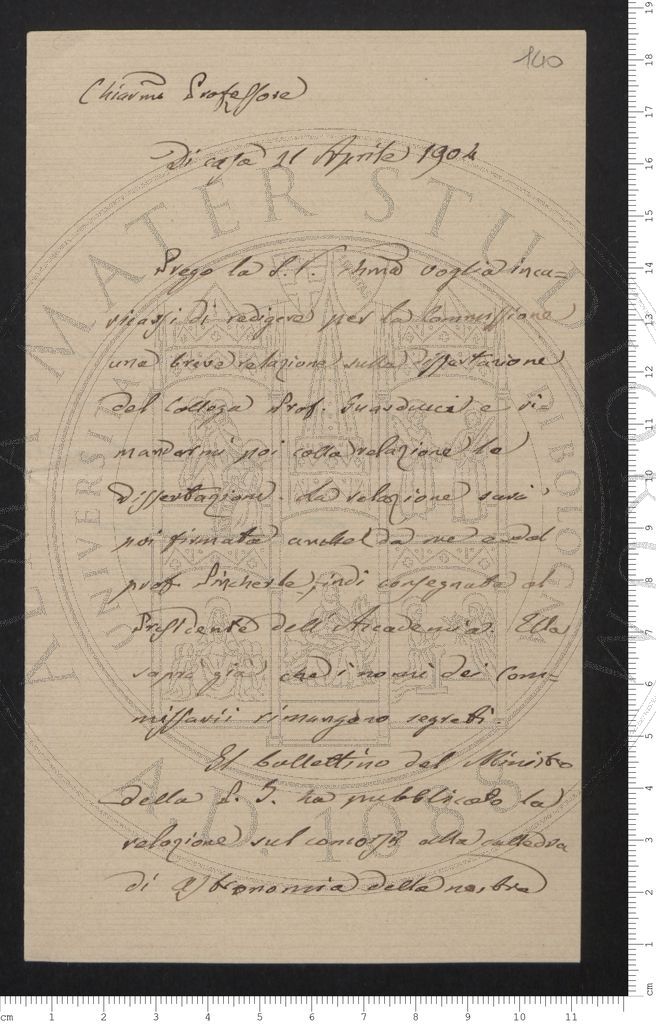 140
Chiarmo Professore
Di casa 21 Aprile 1904
Prego la S. V. Illma voglia inca=
ricarsi di redigere per la Commissione
una breve relazione sulla dissertazione
del Collega Prof. Guarducci e ri=
mandarmi poi colla relazione la
dissertazione. La relazione sarà
poi firmata anche da me e dal
prof. Pincherle, indi consegnata al
Presidente dell'Accademia. Ella
saprà già che i nomi dei Com=
missarii rimangono segreti.
Il bollettino del Ministro
della P. I. ha pubblicato la
relazione sul concorso alla cattedra
di Astronomia della nostra
ALMA MATER STUDIORUM
UNIVERSITÀ DI BOLOGNA
A.D. 1088